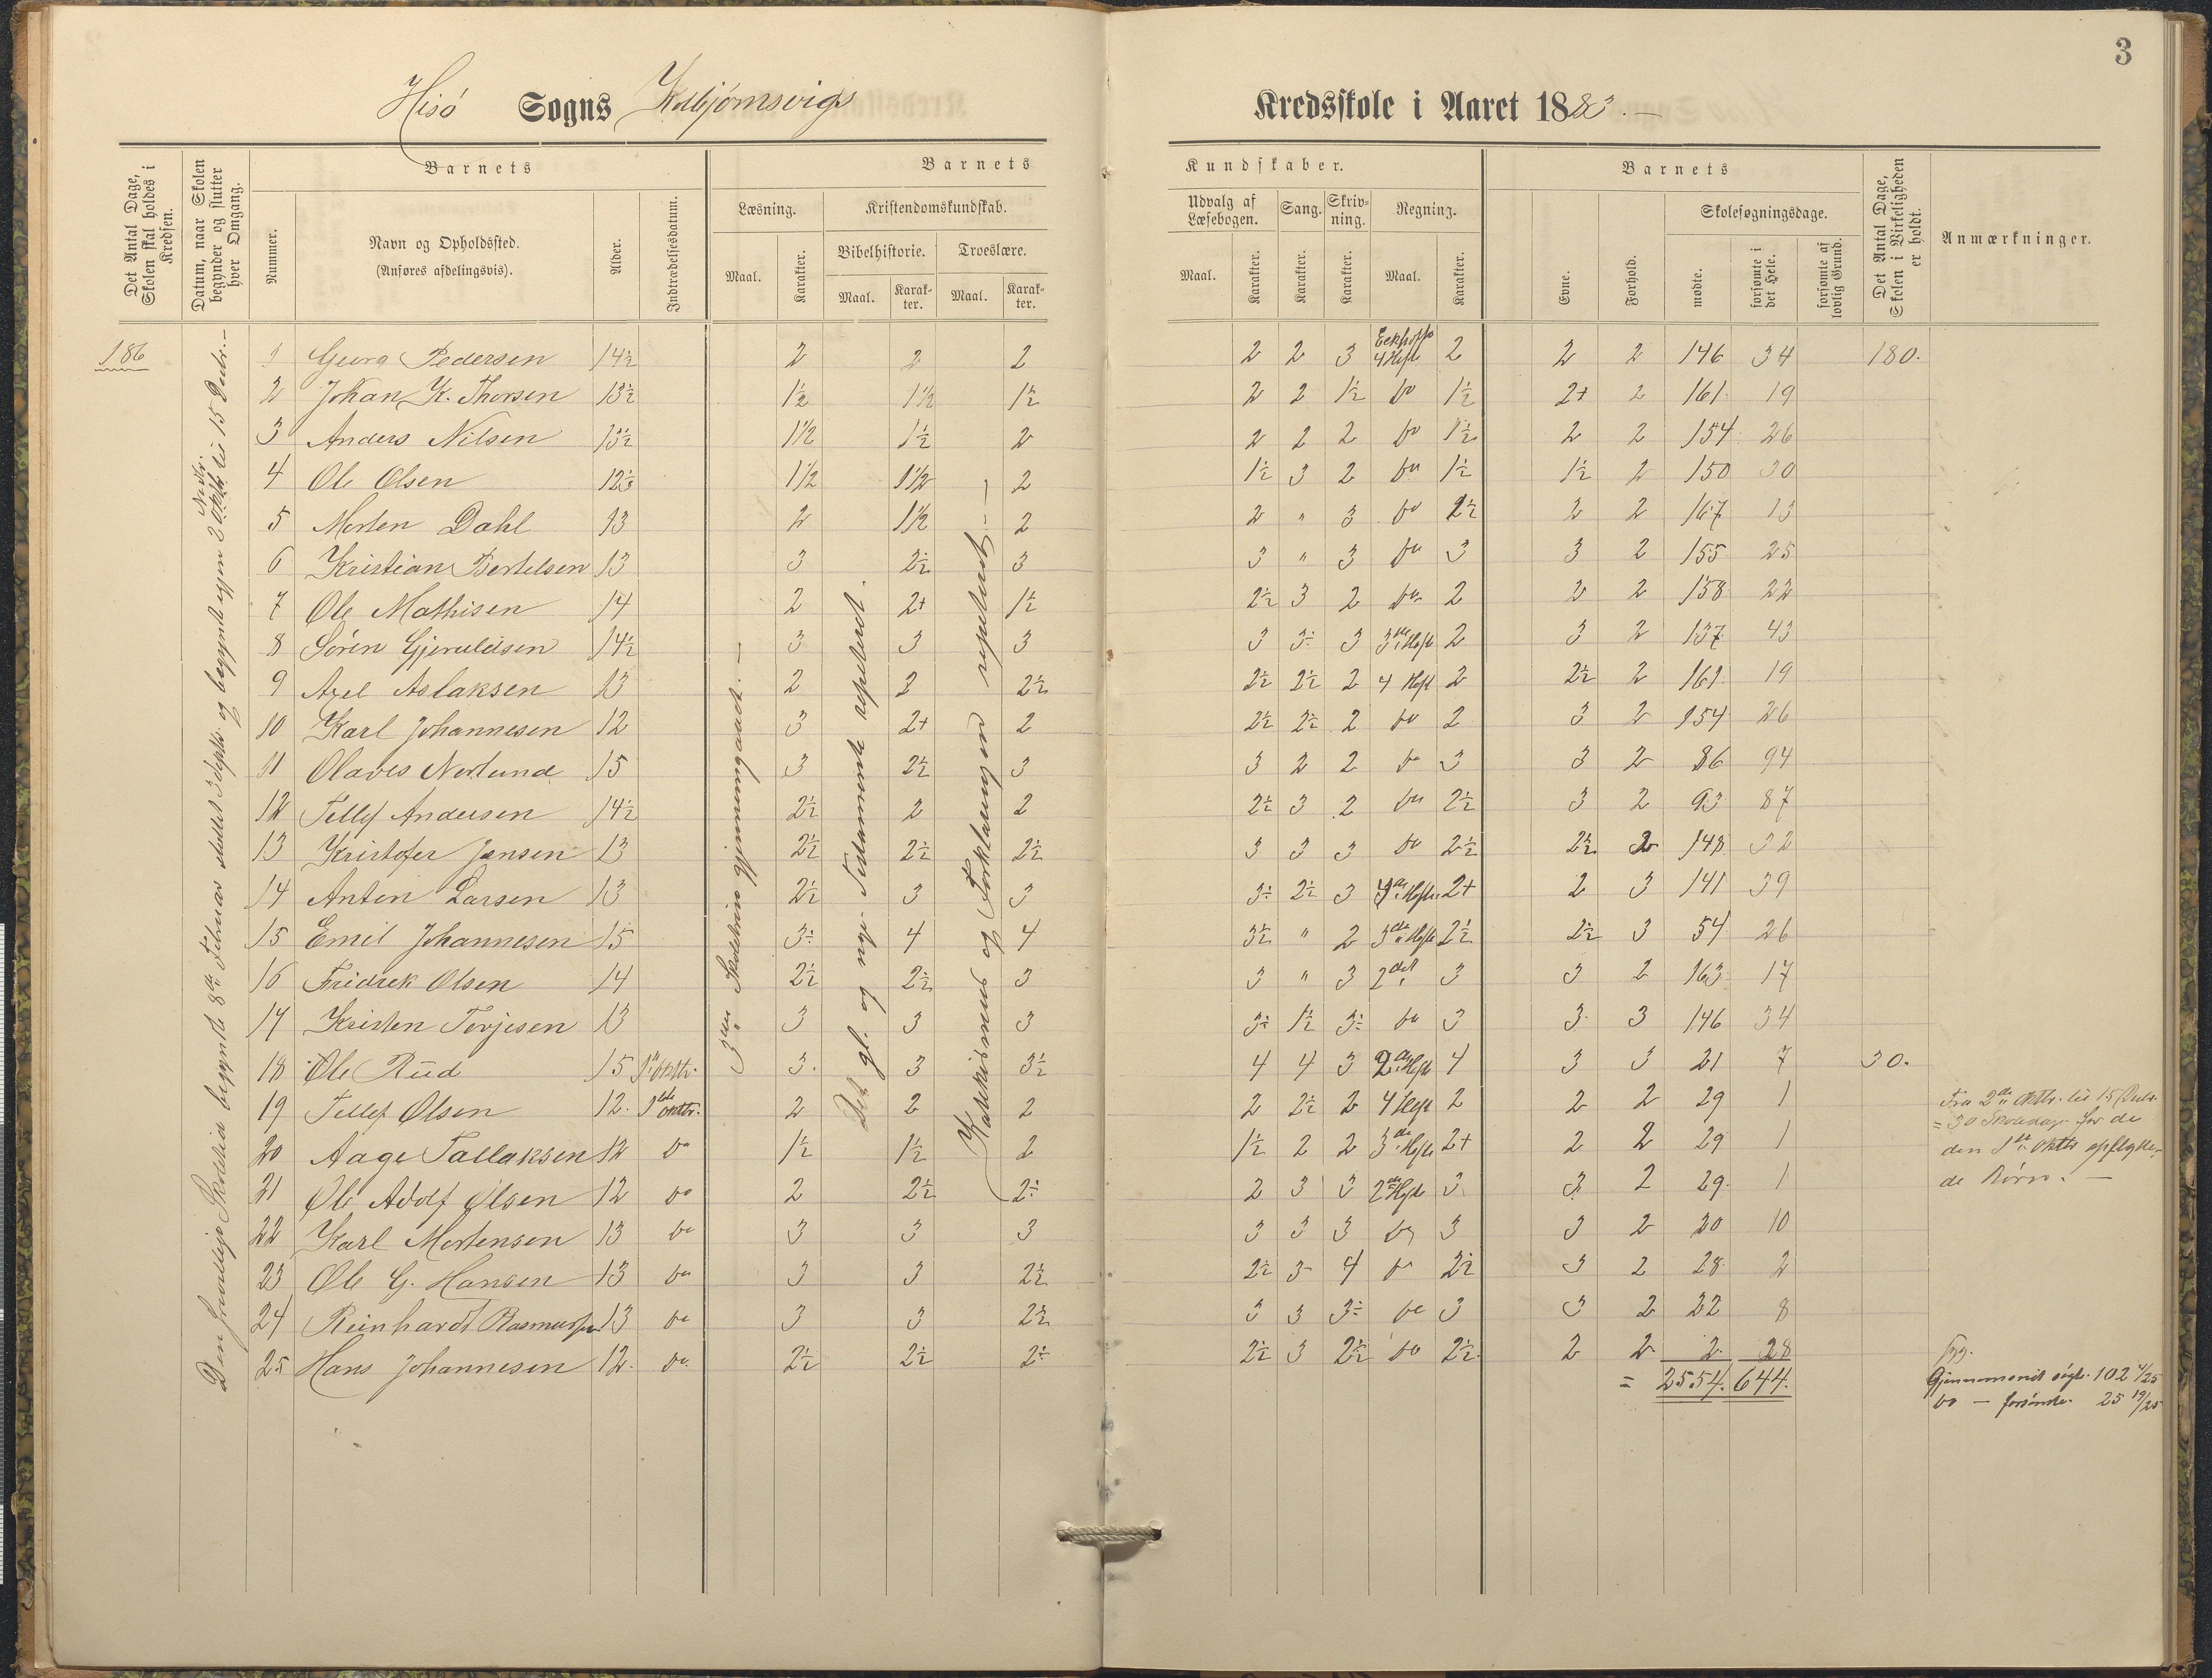 3
Hisö Sogns Kolbjörnsvigs Kredsskole i Aaret 1883.-
Det Antal Dage, Skolen skal holdes i Kredsen.
Datum, naar Skolen begynder og slutter hver Omgang.
Barnets
Nummer.
Navn og Opholdssted.
(Anføres afdelingsvis).
Alder.
Indtrædelsesdatum.
Barnets Kundskaber.
Læsning.
Maal.
Karakter.
Kristendomskundskab.
Bibelhistorie.
Maal.
Karakter.
Troeslære.
Maal.
Karakter.
Udvalg af Læsebogen.
Maal.
Karakter.
Sang.
Karakter.
Skrivning.
Karakter.
Regning.
Maal.
Karakter.
Barnets
Evne.
Forhold.
Skolesøgningsdage.
mødte.
forsømte i det Hele.
forsømte af lovlig Grund.
Det Antal Dage, Skolen i Virkeligheden er holdt.
Anmærkninger.
186
3die Skoletrin gjennemgaaet. —
Det gl. og nye Testamente repeteret.
Katekismus og Forklaringen repeteret. —
1 Georg Pedersen 14½ 2 2 2 2 2 3 4 Hefte 2 2 2 146 34 180.
2 Johan K. Thorsen 13½ 1½ 1½ 1½ 2 2 1½ do 1½ 2+ 2 161 19
3 Anders Nilsen 13½ 1½ 1½ 2 2 2 2 do 1½ 2 2 154 26
4 Ole Olsen 12½ 1½ 1½ 2 1½ 3 2 do 1½ 1½ 2 150 30
5 Morten Dahl 13 2 1½ 2 2 " 3 do 2½ 2 2 167 13
6 Kristian Bertelsen 13 3 2½ 3 3 " 3 do 3 3 2 155 25
7 Ole Mathisen 14 2 2+ 1½ 2½ 3 2 do 2 2 2 158 22
8 Sören Gjeruldsen 14½ 3 3 3 3 3÷ 3 3die Hefte 2 3 2 137 43
9 Axel Aslaksen 13 2 2 2½ 2½ 2½ 2 4 Hefte 2 2½ 2 161 19
10 Karl Johannesen 12 3 2+ 2 2½ 2½ 2 do 2 3 2 154 26
11 Olaves Norlund 15 3 2½ 3 3 2 2 do 3 3 2 86 94
12 Tellef Andersen 14½ 2½ 2 2 2½ 3 2 do 2½ 3 2 93 87
13 Kristofer Jensen 13 2½ 2½ 2½ 3 3 3 do 2½ 2½ 2 148 32
14 Anton Larsen 13 2½ 3 3 3÷ 2½ 3 Hefte 2+ 2 3 141 39
15 Emil Johannesen 15 3÷ 4 4 3½ " 2 3die Hefte 2½ 2½ 3 54 26
16 Fridrek Olsen 14 2½ 2½ 3 3 " 3 2det 3 3 2 163 17
17 Kristen Terjesen 13 3 3 3 3÷ 1½ 3÷ do 3 3 3 146 34
18 Ole Rud 15 1ste Oktbr. 3 3 3½ 4 4 3 2det Hefte 4 3 3 21 7 30.
19 Tellef Olsen 12 1ste Oktbr. 2 2 2 2 2½ 2 4 Hefte 2 2 2 29 1
20 Aage Tallaksen 12 do 1½ 1½ 2 1½ 2 2 3die Hefte 2+ 2 2 29 1
21 Ole Adolf Olsen 12 do 2 2½ 2÷ 2 3 3 2det Hefte 3 3 2 29 1
22 Karl Mortensen 13 do 3 3 3 3 3 3 do 3 3 2 20 10
23 Ole G. Hansen 13 do 3 3 2½ 2½ 3 4 do 2½ 3 2 28 2
24 Reinhardt Rasmussen 13 do 3 3 2½ 3 3 3÷ do 3 3 2 22 8
25 Hans Johannesen 12 do 2½ 2½ 2÷ 2½ 3 2½ do 2½ 2 2 2 28
= 2554. 644.
Fra 2den Oktbr. til 15 Decbr.
= 30 Skoledage for de
den 1ste Oktbr opflytte-
de Börn. —
Gjennemsnit sögte. 102 4/25
do — forsömte. 25 19/25